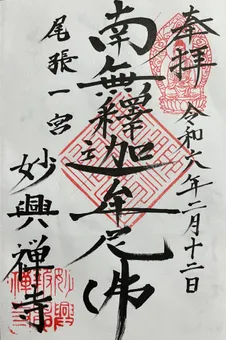 奉拝
令和六年二月十二日
南無釋迦牟尼佛
尾張一宮
妙興禅寺